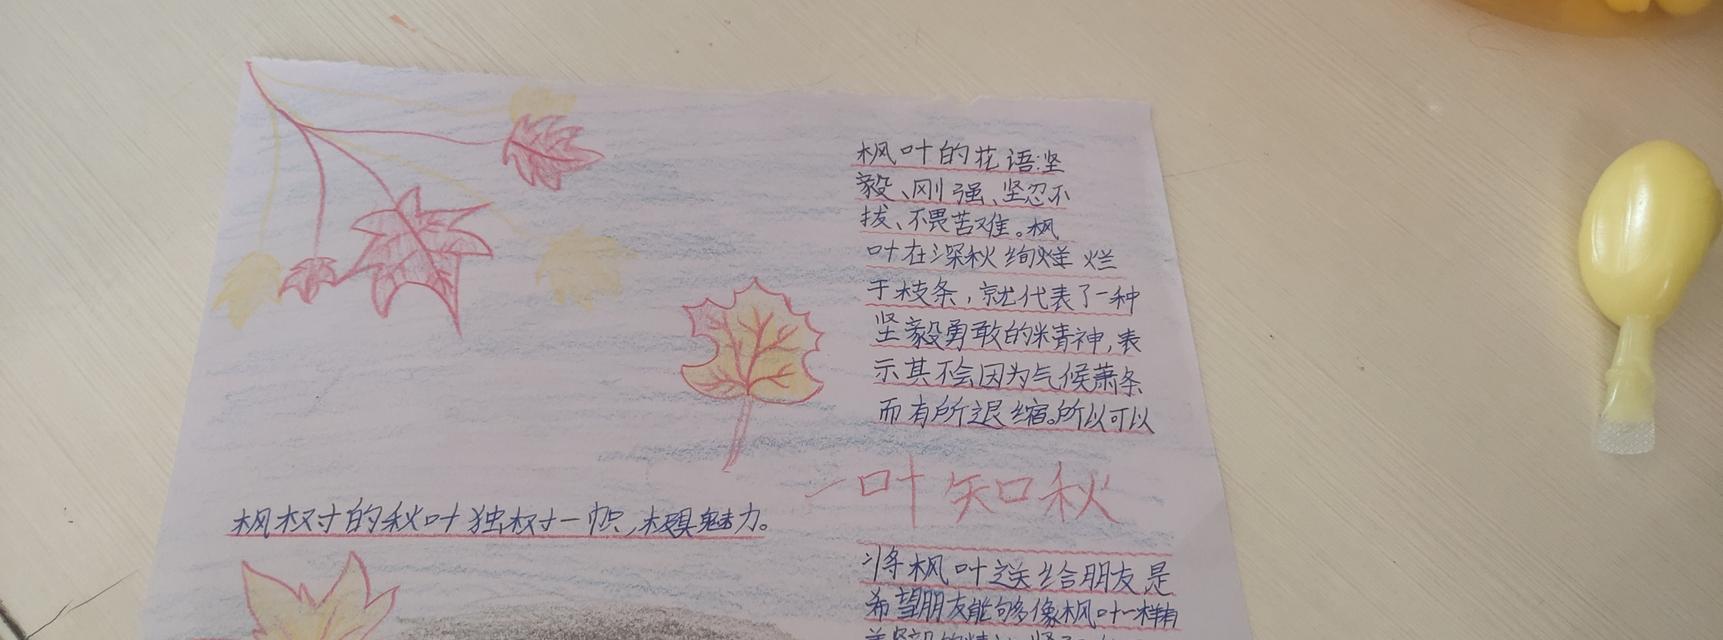 枫叶的花语:坚
毅、刚强、坚忍不
拔、不畏苦难。枫
叶在深秋绚烂 烂
于枝条，就代表了一种
坚毅勇敢的精神,表
示其不会因为气候萧条
而有所退缩。所以可以
一叶知秋
枫树的秋叶独树一帜,极具魅力。
将枫叶送给朋友是
希望朋友能够像枫叶一样有
着坚毅的精神